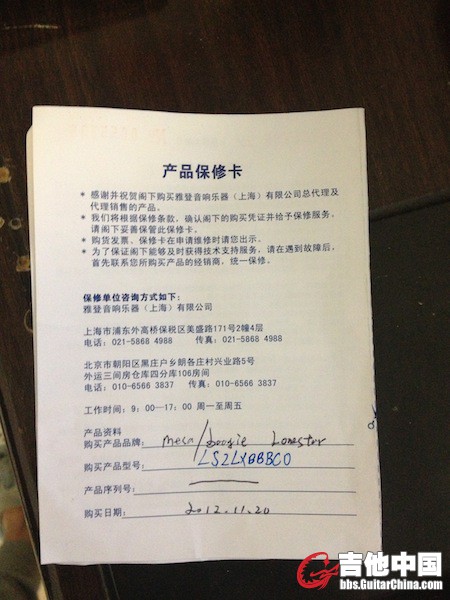 产品保修卡
* 感谢并祝贺阁下购买雅登音响乐器（上海）有限公司总代理及
代理销售的产品。
* 我们将根据保修条款，确认阁下的购买凭证并给予保修服务，
请阁下妥善保管此保修卡。
* 购货发票，保修卡在申请维修时请您出示。
* 为了保证阁下能够及时获得技术支持服务，请在遇到故障后，
首先联系您所购买产品的经销商，统一保修。
保修单位咨询方式如下：
雅登音响乐器（上海）有限公司
上海市浦东外高桥保税区美盛路171号2幢4层
电话：021-5868 4988 传真：021-5868 4988
北京市朝阳区黑庄户乡朗各庄村兴业路5号
外运三间房仓库四分库106房间
电话：010-6566 3837 传真：010-6566 3837
工作时间：9：00—17：00 周一至周五
产品资料
购买产品品牌：Mesa/boogie Lonestar
购买产品型号：LS2LXBBBCO
产品序列号：
购买日期：2012.11.20
吉他中国
bbs.GuitarChina.com